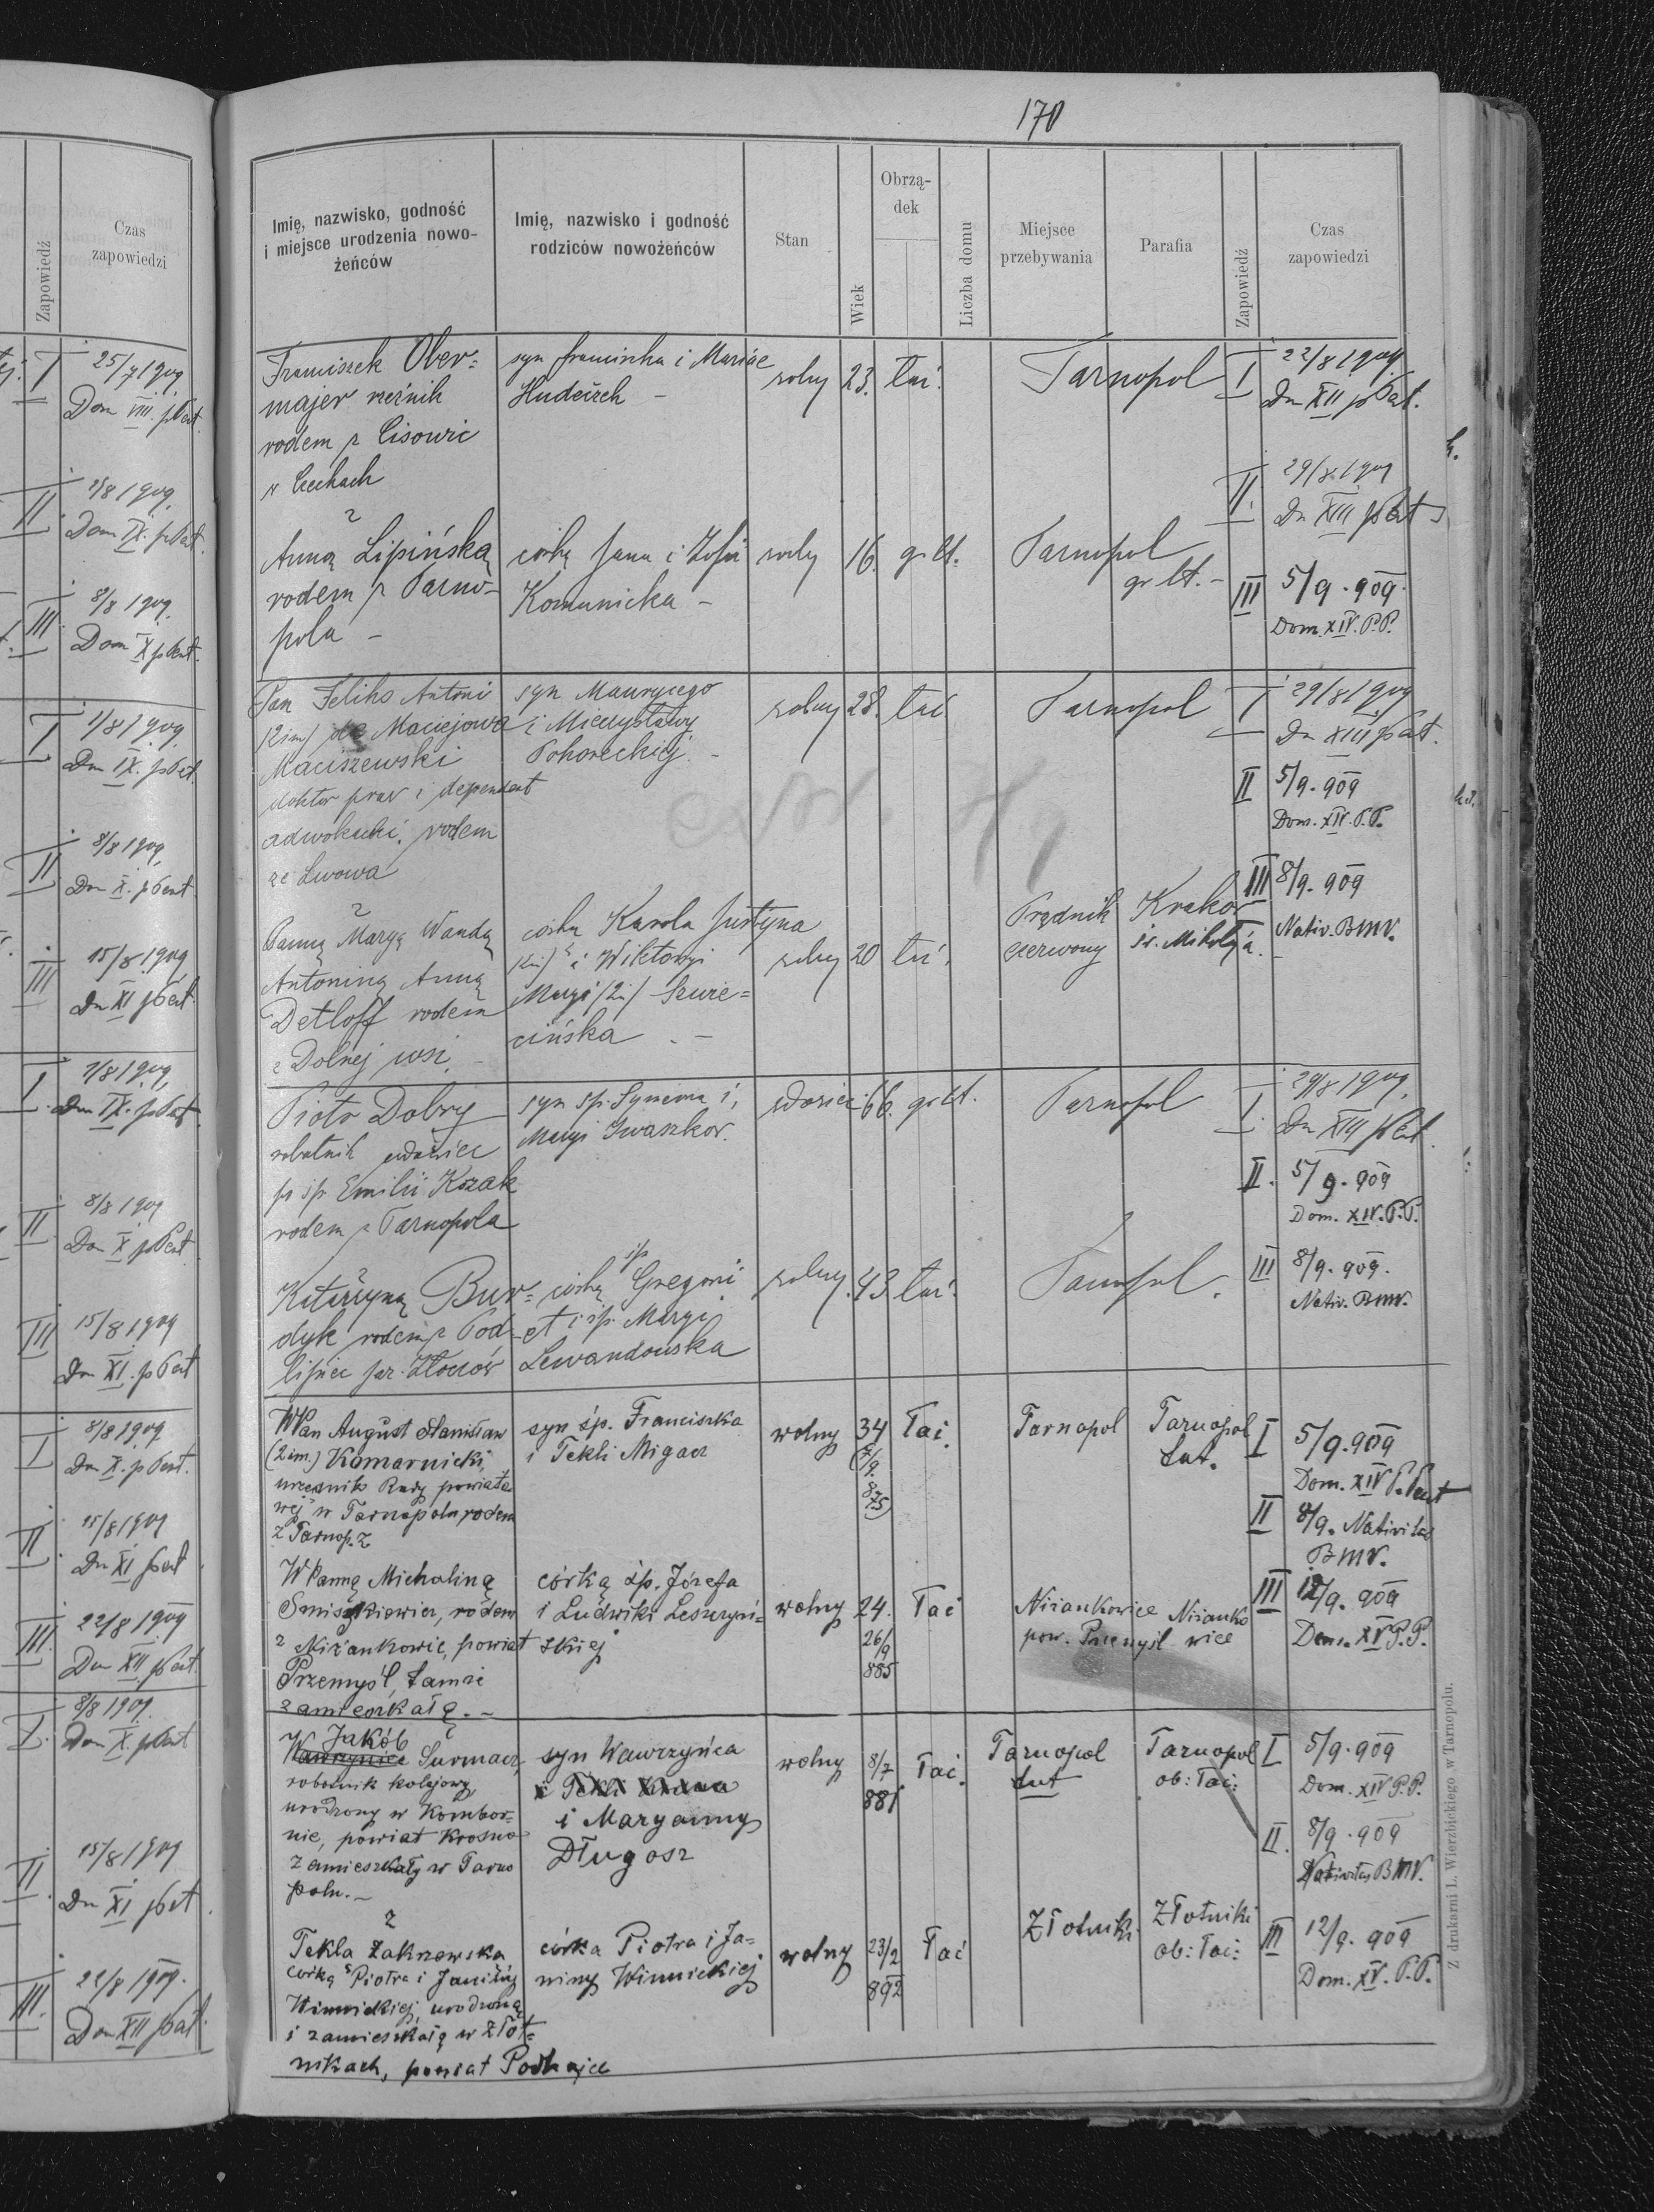 170
Zapowiedź
Czas
zapowiedzi
I 25/7 1909
Dom VIII. p Pent.
II 1/8 1909
Dom IX. p Pent.
III 8/8 1909
Dom X p Pent.
I 1/8 1909
Dom IX. p Pent.
II 8/8 1909
Dom X. p Pent.
III 15/8 1909
Dom XI p Pent.
I 1/8 1909
Dom IX. p Pent.
II 8/8 1909
Dom X p Pent
III 15/8 1909
Dom XI. p Pent
I 8/8 1909
Dom X. p Pent.
II 15/8 1909
Dom XI p Pent
III 22/8 1909
Dom XII. p Pent.
I 8/8 1909.
Dom X. p Pent
II 15/8 1909
Dom XI p Pent
III. 22/8 1909.
Dom XII p Pent.
Imię, nazwisko, godność
i miejsce urodzenia nowo-
żeńców
Imię, nazwisko i godność
rodziców nowożeńców
Stan
Wiek
Obrzą-
dek
Liczba domu
Miejsce
przebywania
Parafia
Zapowiedź
Czas
zapowiedzi
Franciszek Ober=
majer rzeźnik
rodem z Cisowic
w Czechach
syn Franciszka i Maryi
wolny 23. łać.
Tarnopol
I 22/8 1909.
Dn XII p Pent.
II. 29/8 1909
Dn XIII p Pent
z
Anną Lipińską
rodem z Tarno-
pola -
córką Jana i Zofii
Komunicka -
wolny 16. gr lt.
Tarnopol
gr lt. -
III 5/9. 909.
Dom. XIV. P.P.
Pan Feliks Antoni
(2 im) de Maciejowa
Maciszewski
doktor praw i dependent
adwokacki, rodem
ze Lwowa
syn Maurycego
i Mieczysławy
Pohoreckiej. -
wolny 28. łać.
Tarnopol
I 29/8 1909
Dn XIII p Pent.
II 5/9. 909
Dom. XIV. P.P.
III 8/9. 909
Nativ. BMV.
z
Panną Maryą Wandą
Antoniną Anną
Detloff rodem
z Dolnej wsi. -
córką Karola Justyna
(2 im) i Wiktoryi
Maryi (2 i)
wolny 20 łać.
Prądnik
czerwony
Kraków
św. Mikołaja.
Piotr Dobry
robotnik wdowiec
po śp Emilii Kozak
rodem z Tarnopola
syn śp. Symeona i
Maryi Iwaszków.
wdowiec 66. gr lt.
Tarnopol
I. 29/8 1909.
Dn XIII p Pent.
II. 5/9. 909
Dom. XIV. P.P.
III 8/9. 909.
Nativ. BMV.
z
Katarzyną Bur=
dyk rodem z Pod-
lipiec par. Złoczów
śp
córką Gregorii
et i śp. Maryi
Lewandowska
wolny. 43 łać.
Tarnopol.
WPan August Stanisław
(2 im.) Komarnicki,
urzędnik Rady powiato
wej w Tarnopolu rodem
z Tarnop. z
syn śp. Franciszka
i Tekli Migacz
wolny 34 łać.
Tarnopol
Tarnopol
Lat.
I 5/9. 909
Dom. XIV P. Pent
II 8/9. Nativitas
BMV.
III 12/9. 909
Dom. XV P.P.
WPanną Michaliną
Smiszkiewicz, rodem
z Niżankowic, powiat
Przemyśl, tamże
zamieszkałą. -
córką śp. Józefa
i Ludwiki Leszczyń=
skiej
wolny 24. łać
26/9
885
Niżankowice
pow. Przemyśl
Niżanko
wice
Jakób
Wawrzyniec Surmacz,
robotnik kolejowy,
urodzony w Kombor=
nie, powiat Krosno
zamieszkały w Tarno
polu. -
syn Wawrzyńca
i Maryanny
Długosz
wolny 8/7
881
łać.
Tarnopol
Lat
Tarnopol
ob: łać:
I 5/9. 909
Dom. XIV P.P.
II. 8/9. 909
Nativitas BMV.
III 12/9. 909
Dom. XV. P.P.
z
Tekla Zakrzewska
córką Piotra i Janiny
Winnickiej, urodzoną
i zamieszkałą w Złot=
nikach, powiat Podhajce
córka Piotra i Ja=
niny Winnickiej
wolny 23/2
892
łać
Złotniki
Złotniki
ob: łać:
Z drukarni L. Wierzbickiego w Tarnopolu.